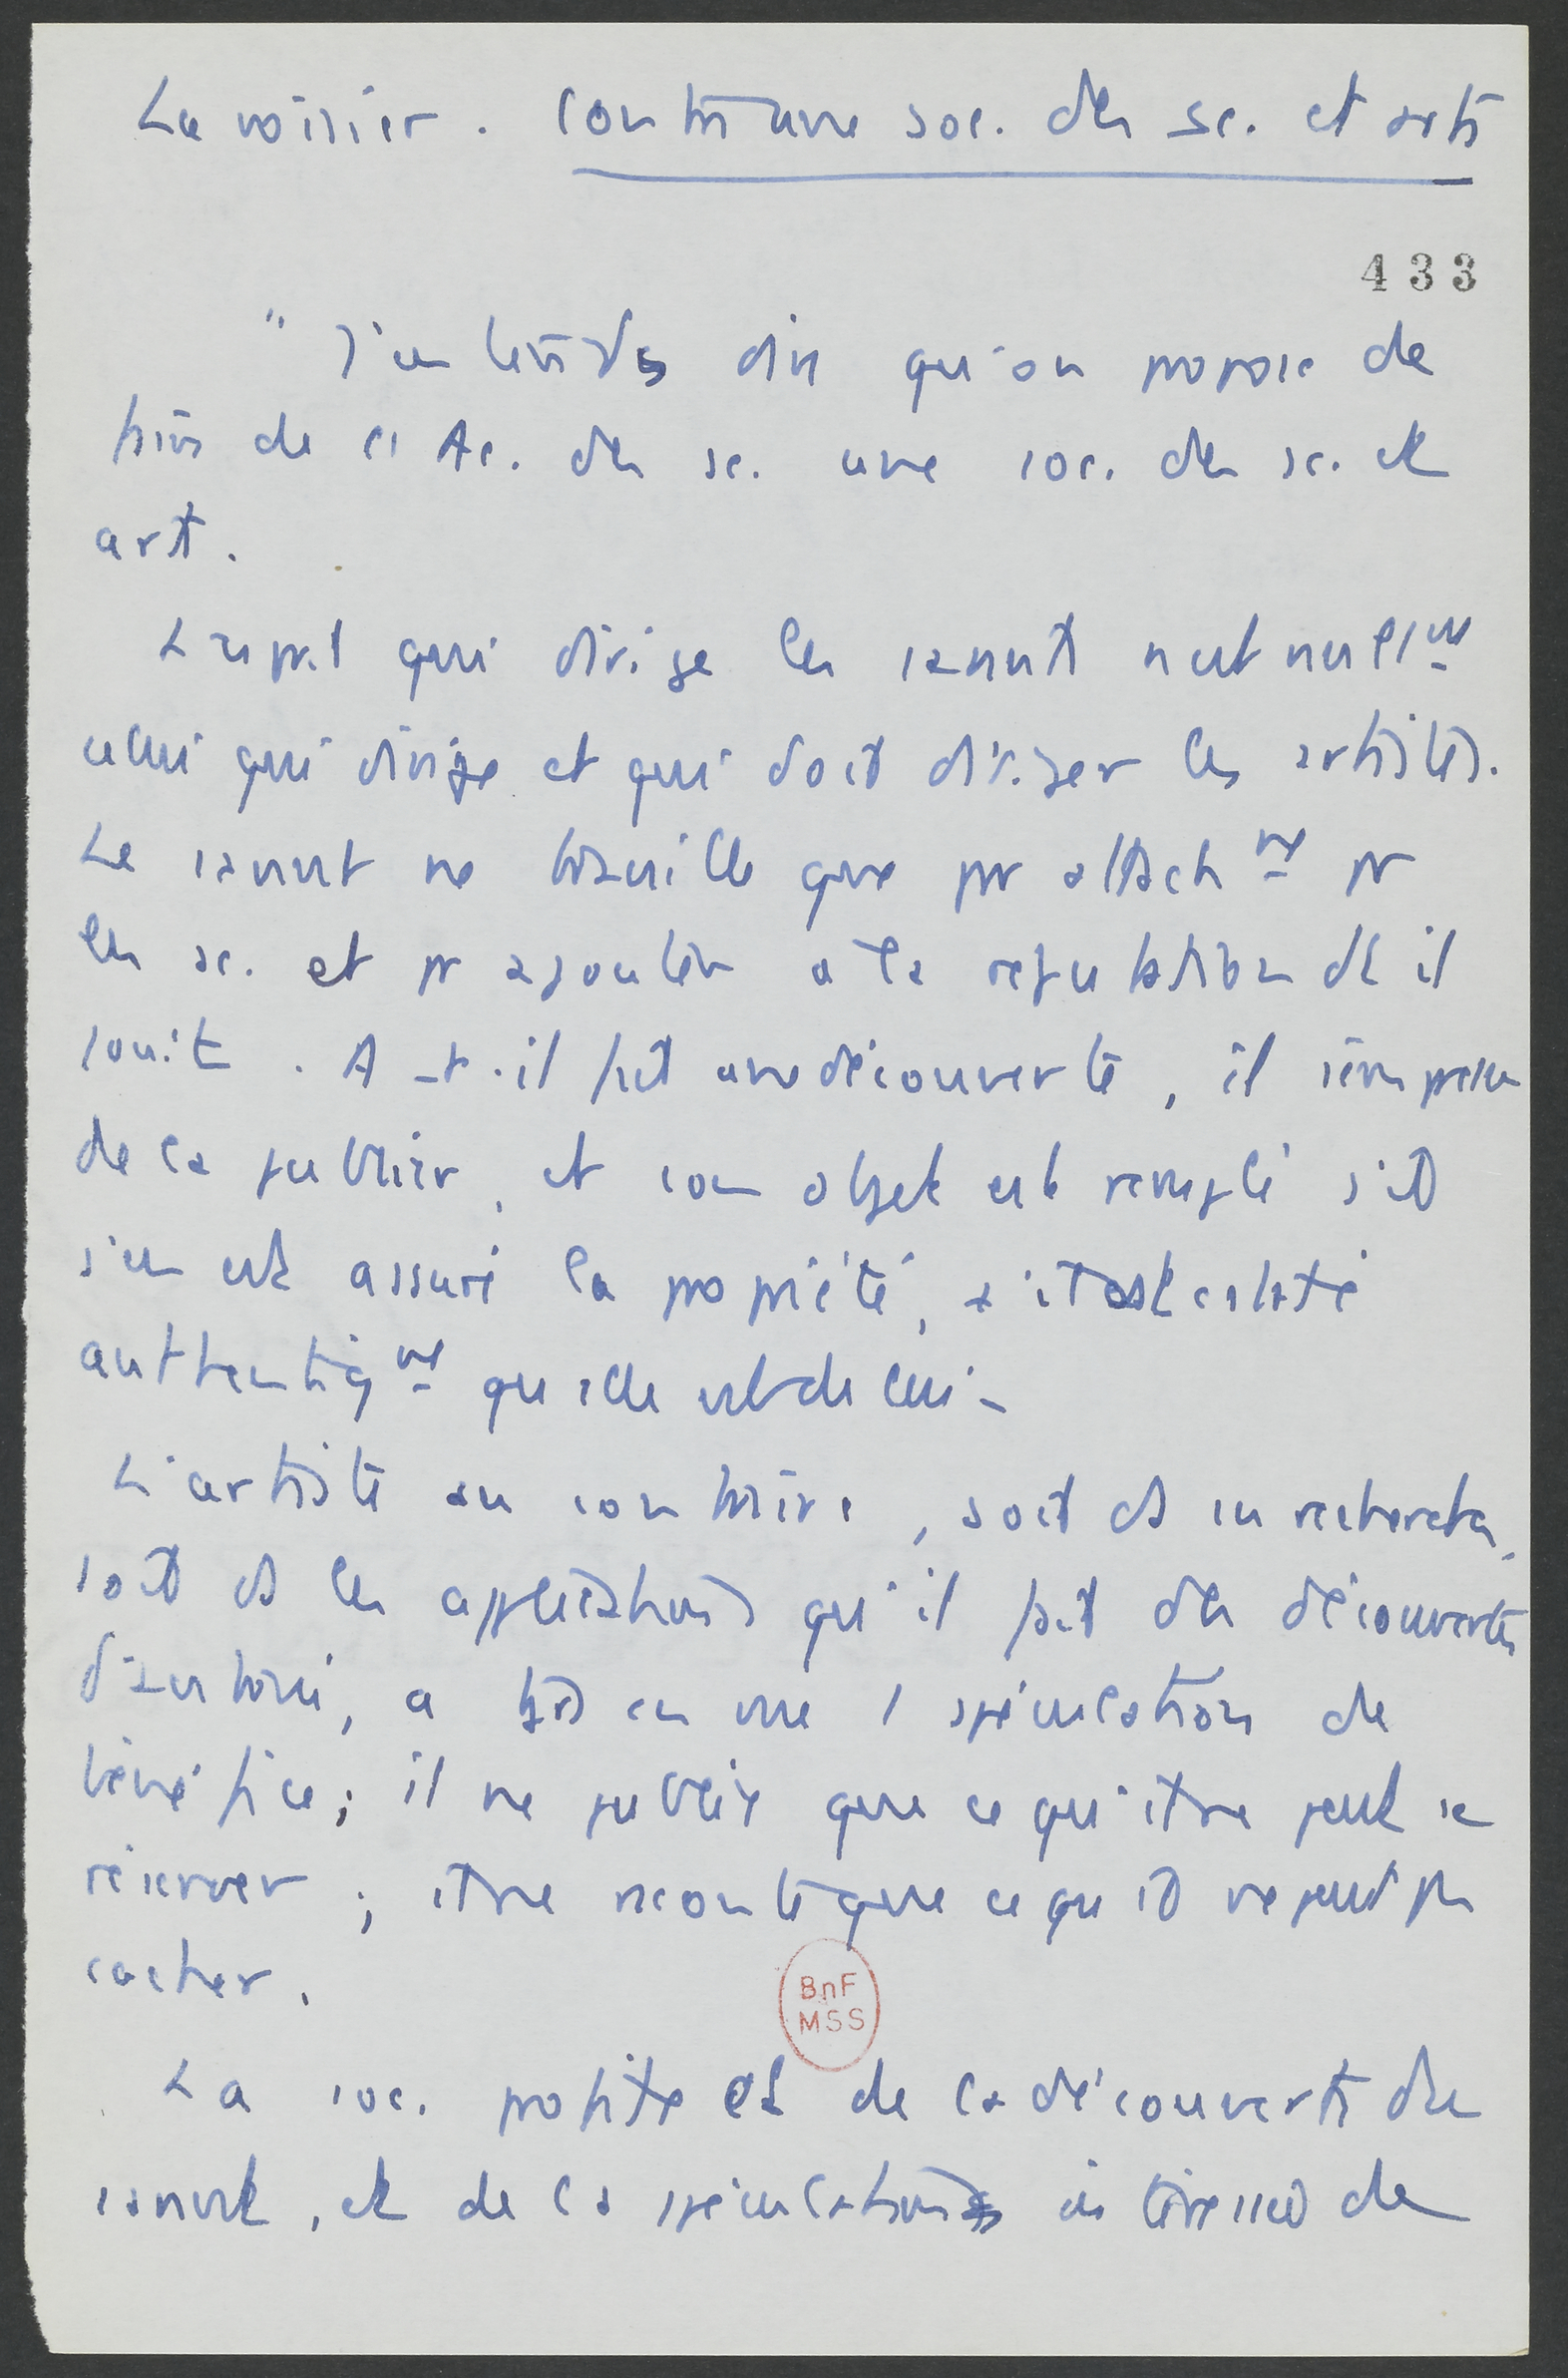 Lavoisier. Contre une soc. des sc. et arts
433
" J'entends dire qu'on propose de
faire de l'Ac. des sc. une soc. des sc. et
art.
L'esprit qui dirige les savants n'est nullmt
celui qui dirige et qui doit diriger les artistes.
Le savant ne travaille que par attachmt pr
les sc. et pr ajouter à la réputation dt il
jouit. A-t-il fait une découverte, il s'empresse
de la publier, et son objet est rempli s'il
s'en est assuré la propriété, s'il est constaté
authentiqmt qu'elle est de lui -
L'artiste au contraire, soit ds ses recherches,
soit ds les applications qu'il fait des découvertes
d'autrui, a tjs en vue 1 spéculation de
bénéfice ; il ne publie que ce qu'il ne peut se
réserver ; il ne raconte que ce qu'il ne peut pas
cacher.
BnF
MSS
La soc. profite et de la découverte du
savant, et de la spéculation intéressée de